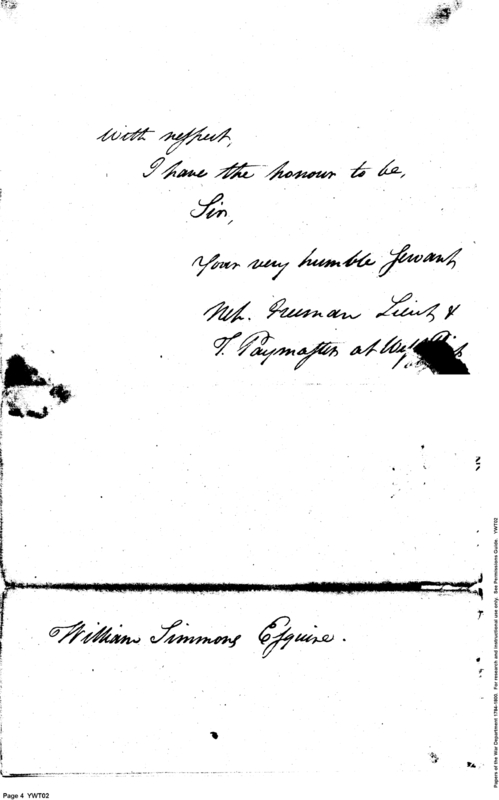 with respect,
I have the honour to be,
Sir,
Your very humble Servant
Neh. Freeman Lieut &
T. Paymaster at West
William Simmons Esquire.
Papers of the War Department 1784-1800. For research and instructional use only. See Permissions Guide. YWT02
Page 4 YWT02